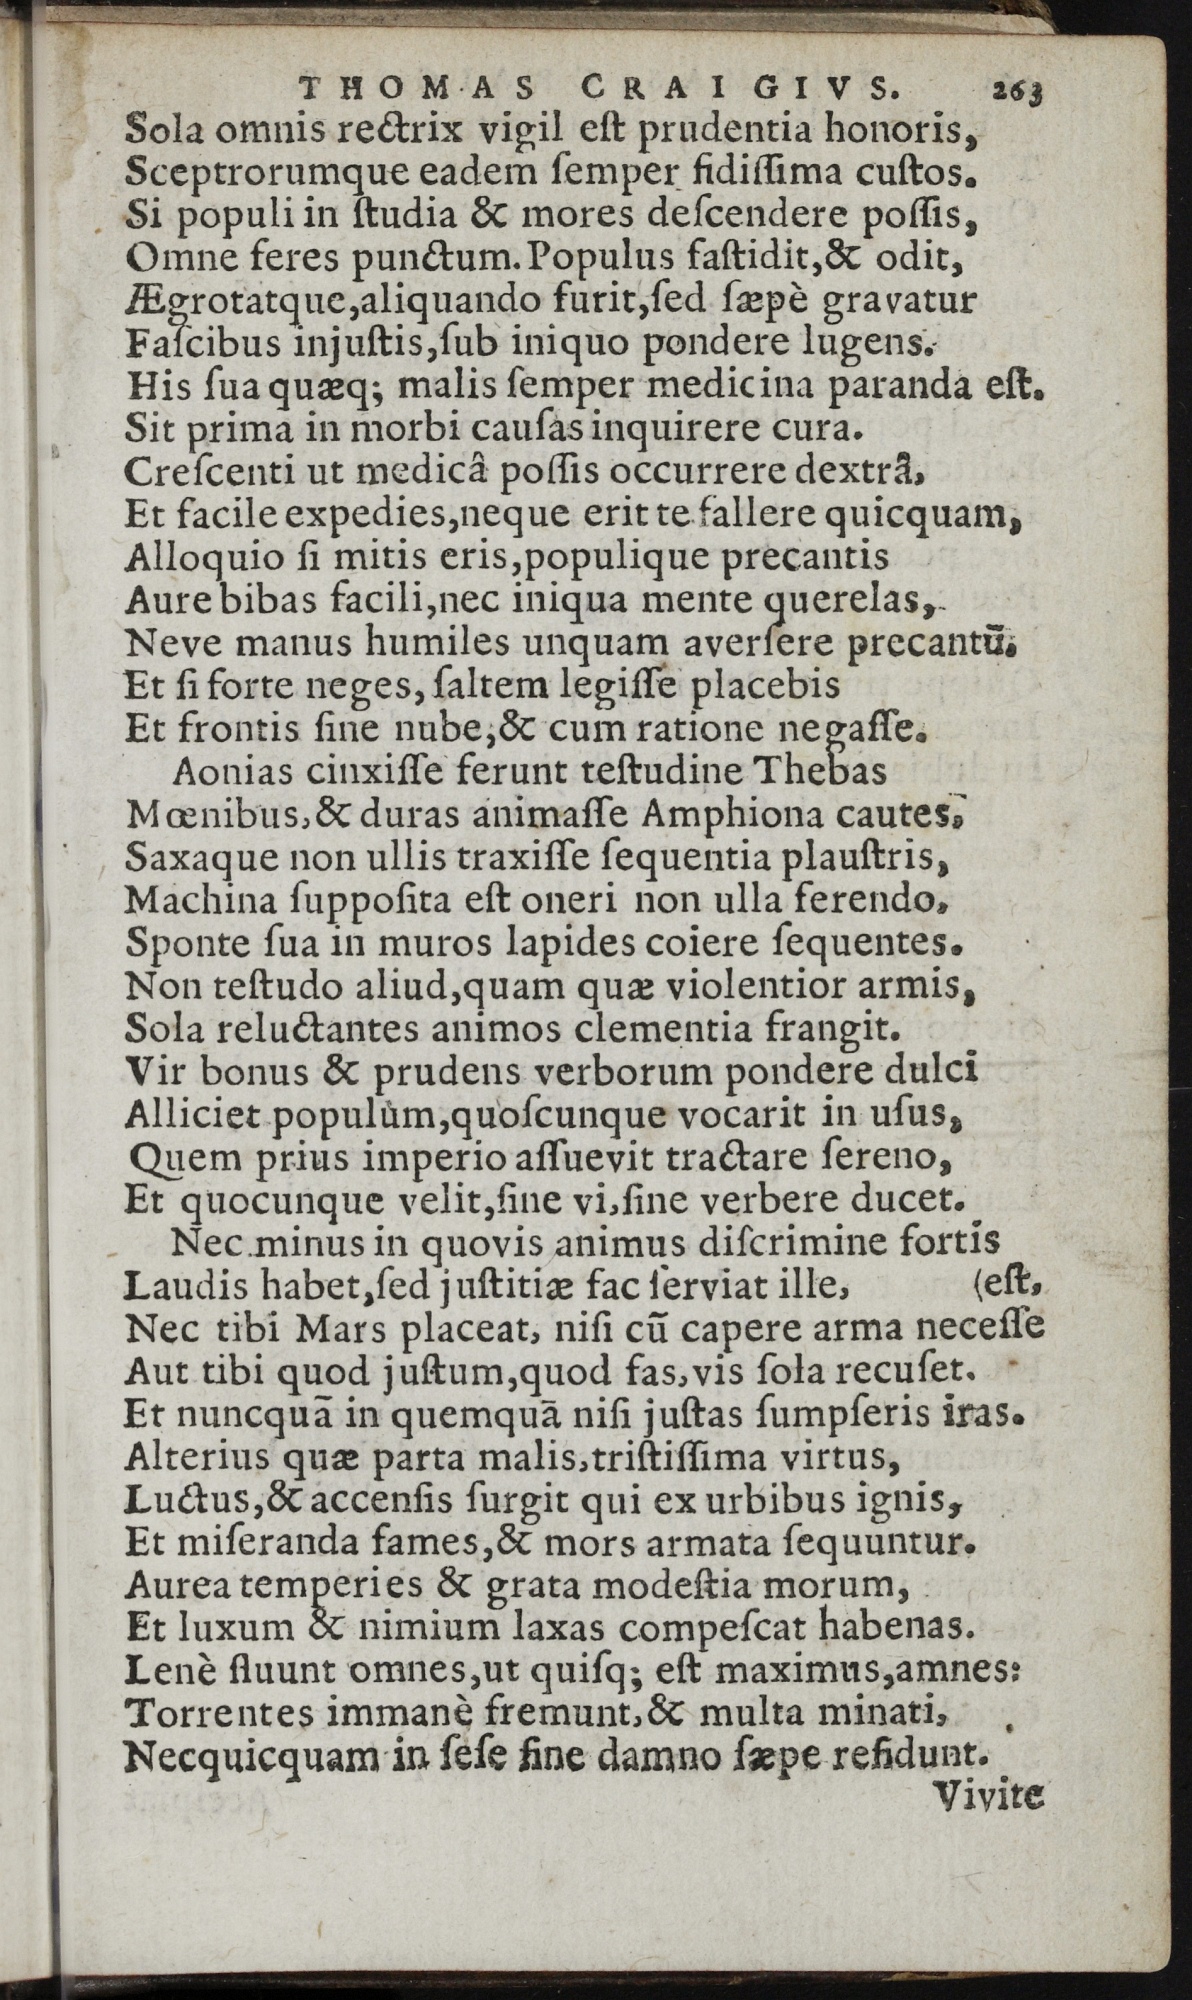 THOMAS CRAIGIVS. 263
Sola omnis rectrix vigil eſt prudentia honoris,
Sceptrorumque eadem ſemper fidiſſima cuſtos.
Si populi in ſtudia & mores deſcendere poſſis,
Omne feres punctum. Populus faſtidit,& odit,
Ægrotatque,aliquando furit,ſed ſæpè gravatur
Faſcibus injuſtis,ſub iniquo pondere lugens.
His ſua quæq; malis ſemper medicina paranda eſt.
Sit prima in morbi cauſas inquirere cura.
Creſcenti ut medicâ poſſis occurrere dextrâ,
Et facile expedies,neque erit te fallere quicquam,
Alloquio ſi mitis eris,populique precantis
Aure bibas facili,nec iniqua mente querelas,
Neve manus humiles unquam averſere precantū.
Et ſi forte neges, ſaltem legiſſe placebis
Et frontis ſine nube,& cum ratione negaſſe.
Aonias cinxiſſe ferunt teſtudine Thebas
Mœnibus,& duras animaſſe Amphiona cautes,
Saxaque non ullis traxiſſe ſequentia plauſtris,
Machina ſuppoſita eſt oneri non ulla ferendo,
Sponte ſua in muros lapides coiere ſequentes.
Non teſtudo aliud,quam quæ violentior armis,
Sola reluctantes animos clementia frangit.
Vir bonus & prudens verborum pondere dulci
Alliciet populum,quoſcunque vocarit in uſus,
Quem prius imperio aſſuevit tractare ſereno,
Et quocunque velit,ſine vi,ſine verbere ducet.
Nec minus in quovis animus diſcrimine fortis
Laudis habet,ſed juſtitiæ fac ſerviat ille, (eſt,
Nec tibi Mars placeat, niſi cū capere arma neceſſe
Aut tibi quod juſtum,quod fas,vis ſola recuſet.
Et nuncquā in quemquā niſi juſtas ſumpſeris iras.
Alterius quæ parta malis,triſtiſſima virtus,
Luctus,& accenſis ſurgit qui ex urbibus ignis,
Et miſeranda fames,& mors armata ſequuntur.
Aurea temperies & grata modeſtia morum,
Et luxum & nimium laxas compeſcat habenas.
Lenè fluunt omnes,ut quiſq; eſt maximus,amnes:
Torrentes immanè fremunt,& multa minati,
Necquicquam in ſeſe ſine damno ſæpe reſidunt.
Vivite